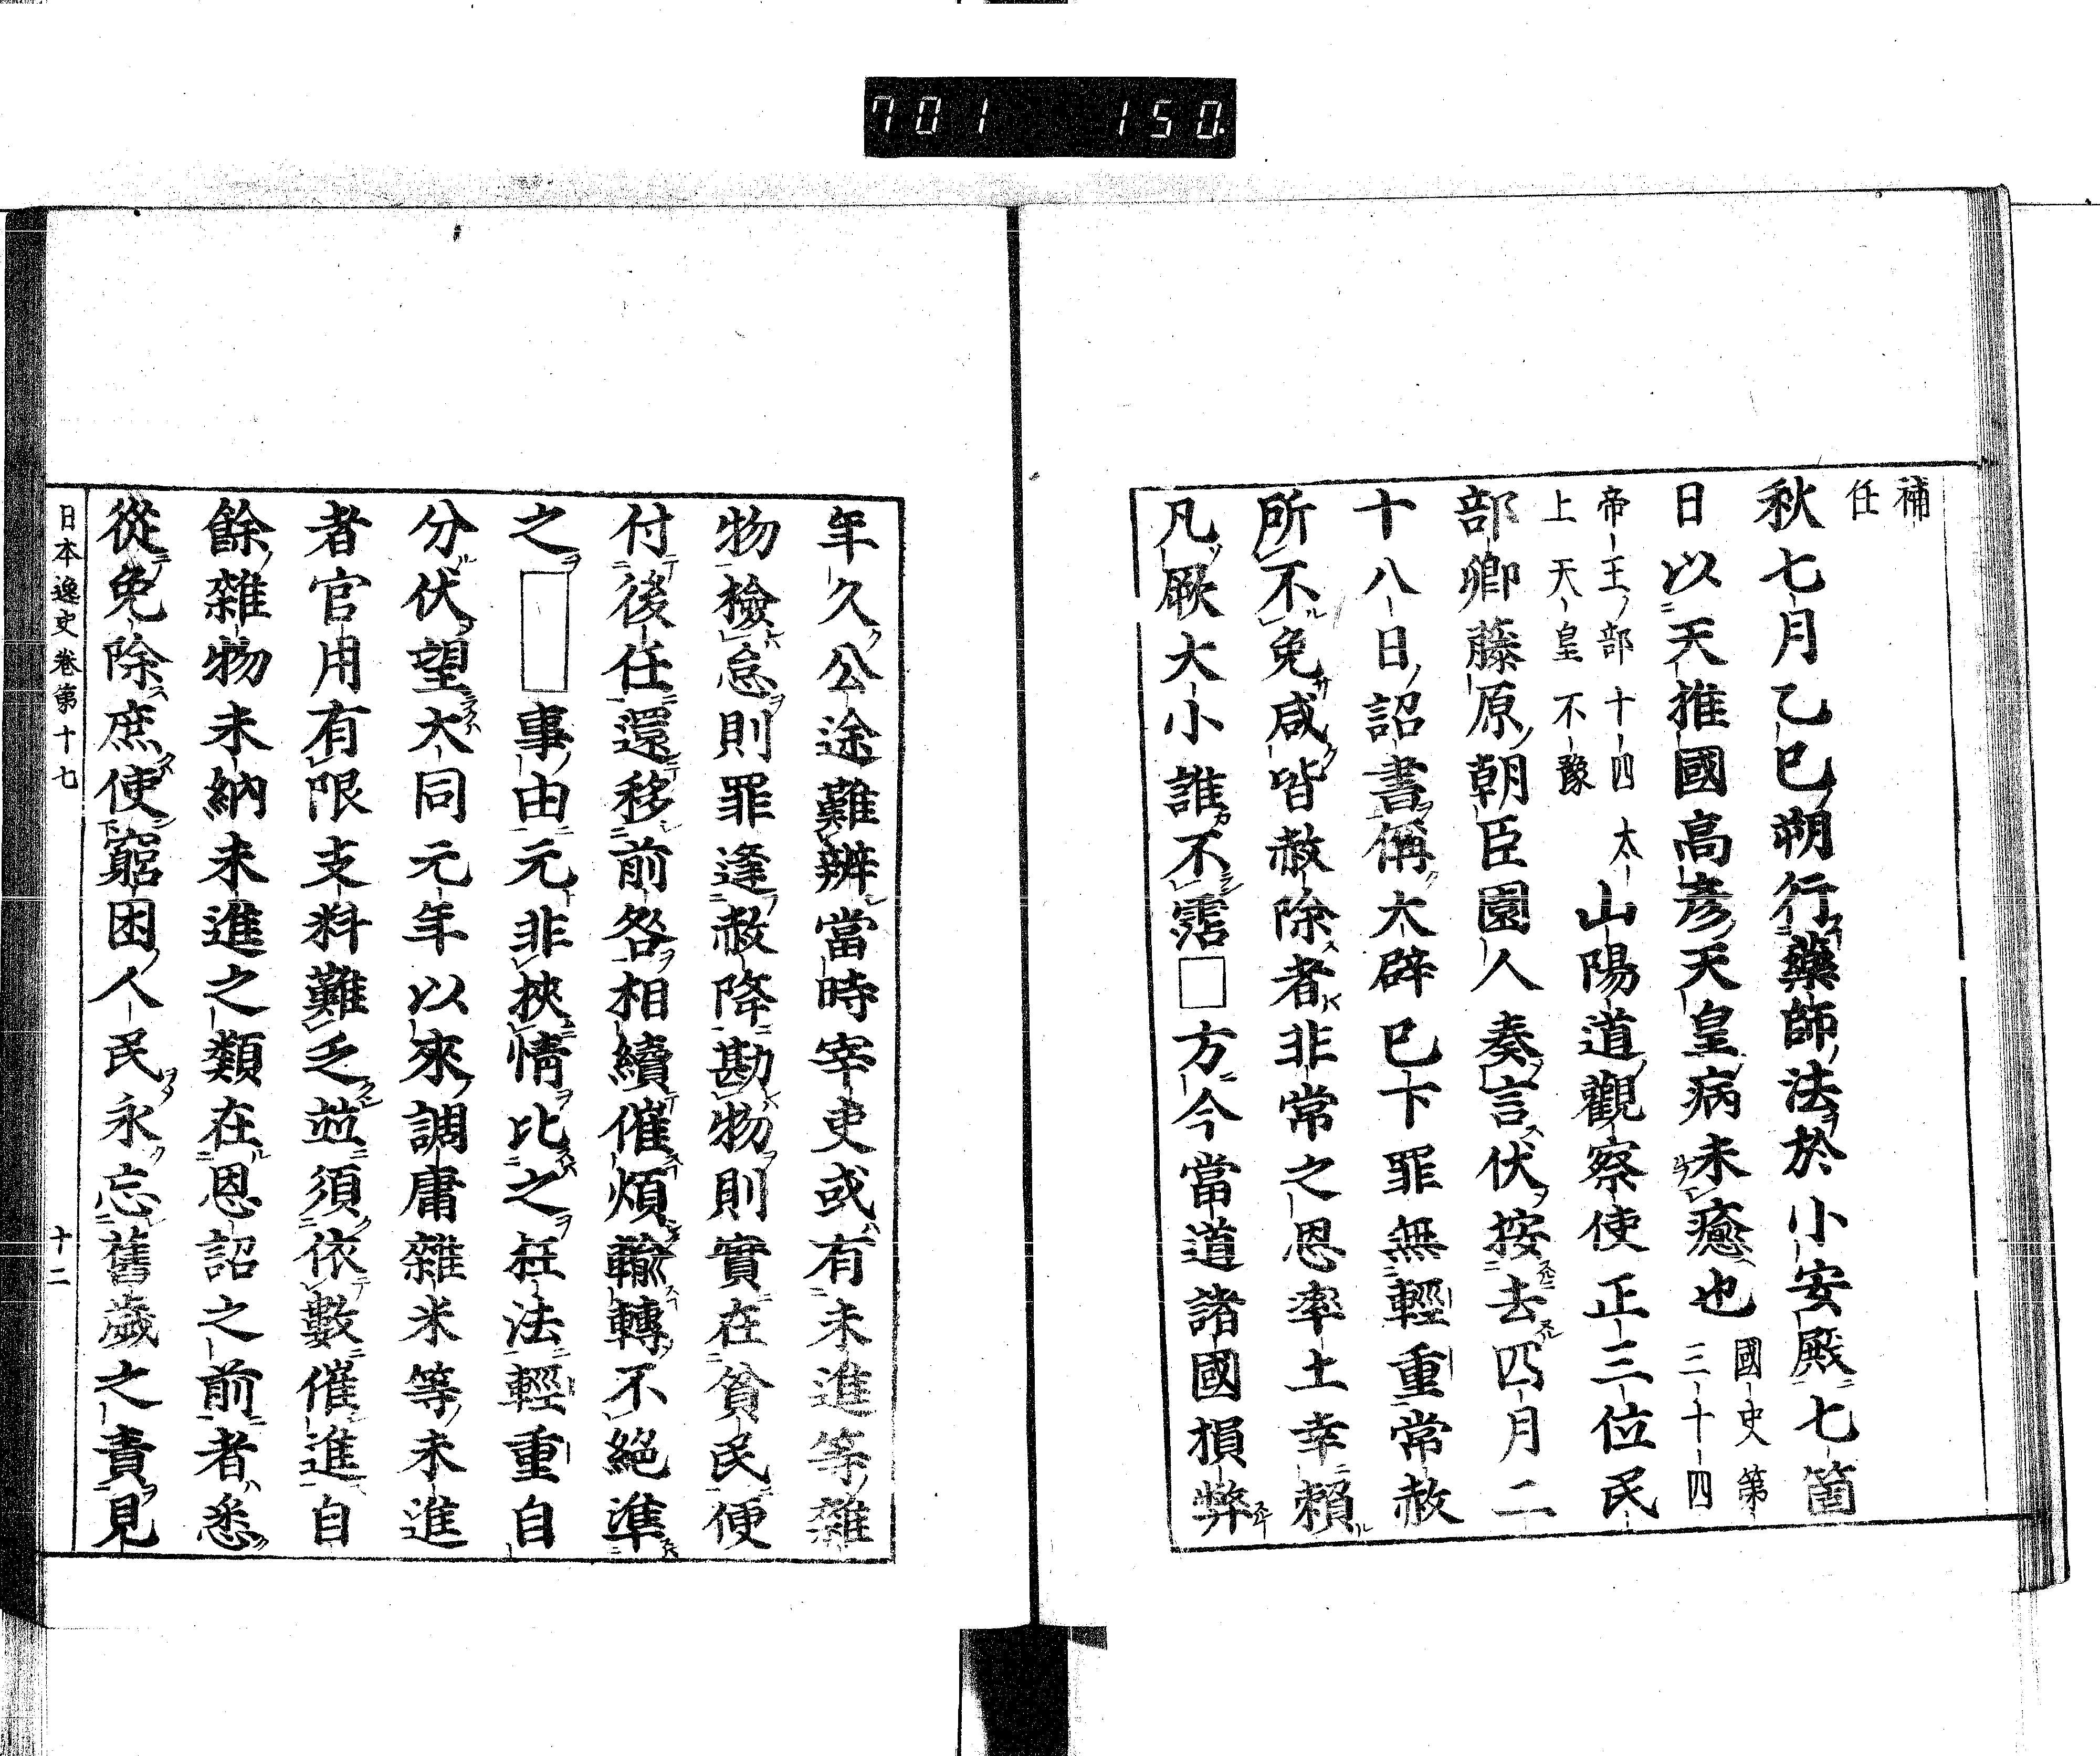 701 150
補
任
秋七月乙巳朔行藥師法於小安殿七箇
日以天推國高彦天皇病未癒也國史第
三十四
帝王部十四太
上天皇不豫山陽道觀察使正三位民
部卿藤原朝臣園人奏言伏按去四月二
十八日詔書偁大辟已下罪無輕重常赦
所不免咸皆赦除者非常之恩率土幸賴
凡厥大小誰不霑□方今當道諸國損弊
年久公途難辨當時宰吏或有未進等雜
物檢怠則罪逢赦降勘物則實在貧民便
付後任還移前咎相續催煩輸轉不絕準
之□事由元非挾情比之枉法輕重自
分伏望大同元年以來調庸雜米等未進
者官用有限支料難乏並須依數催進自
餘雜物未納未進之類在恩詔之前者悉
從免除庶使窮困人民永忘舊歲之責見
日本逸史卷第十七 十二